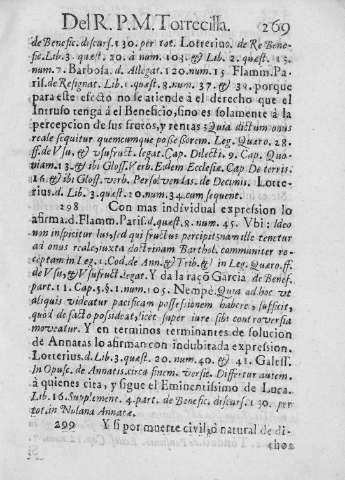 Del R. P. M. Torrecilla. 269
de Benefic. discurs. 130. per tot. Lotterino. de Re Bene-
fic. Lib. 3. quæst. 20. à num. 103. & Lib. 2. quæst. 15.
num. 7. Barbosa. d. Allegat. 120. num. 15 Flamm. Pa-
ris. de Resignat. Lib. 1. quæst. 8. num. 37. & 38. porque
para este efecto no se atiende à el derecho que el
Intruso tenga à el Beneficio, sino es solamente à la
percepcion de sus frutos, y rentas: Quia dictum onus
reale sequitur quemcumque possessorem. Leg. Quæro. 28.
ff. de Usu, & usufruct. legat. Cap. Dilecti. 9. Cap. Quo-
niam. 13. & ibi Gloss. Verb. Eedem Ecclesiæ. Cap. De terris.
16. & ibi Gloss. verb. Persolvendas. de Decimis. Lotte-
rius. d. Lib. 3. quæst. 20. num. 34. cum sequent.
298 Con mas individual expression lo
afirma. d. Flamm. Paris. d. quæst. 8. num. 45. Vbi: Ideo
non inspicitur Ius, sed qui fructus percipit, nam ille tenetur
ad onus reale, juxta doctrinam Barthol. communiter re-
ceptam in Leg. 1. Cod. de Ann. & Trib. & in Leg. Quæro. ff.
de Usu, & Usufruct. legat. Y da la raçõ Garcia de Benef.
part. 11. Cap. 5. §. 1. num. 105. Nempè. Quia ad hoc ut
aliquis videatur pacificam possessionem habere, sufficit,
quòd de facto possideat, licet super iure sibi controversia
moveatur. Y en terminos terminantes de solucion
de Annatas lo afirman con indubitada expression.
Lotterius. d. Lib. 3. quæst. 20. num. 40. & 41. Galess.
In Opusc. de Annatis. circa finem. versic. Differtur autem.
à quienes cita, y sigue el Eminentissimo de Luca.
Lib. 16. Supplement. 4. part. de Benefic. discurs. 130. per
tot. in Nolana Annatæ.
299 Y si por muerte civil, ò natural de di-
chos